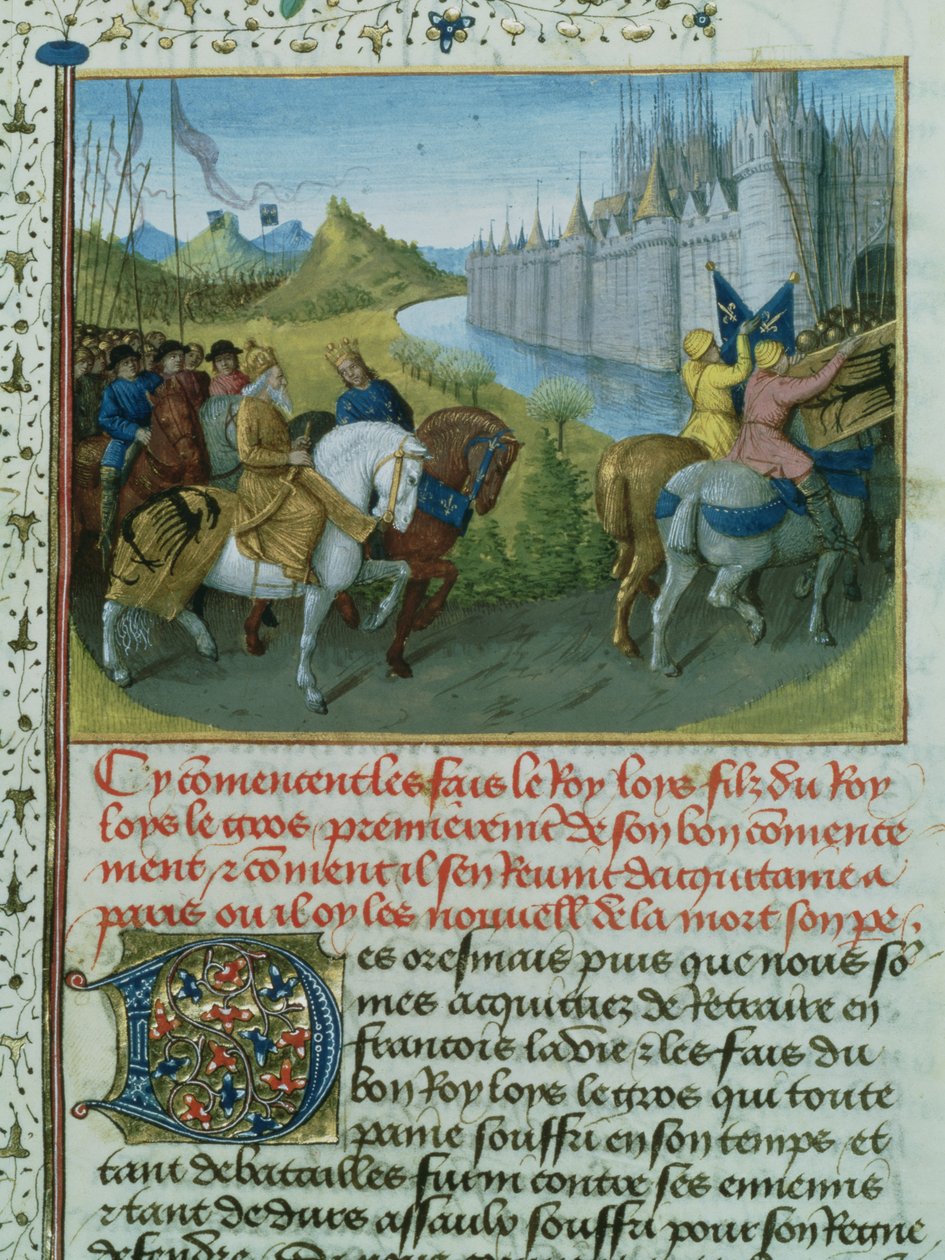 Cy cōmencent les fais le Roy loys filz du Roy
loys le gros premieremt̄ de son bon cōmence
ment ⁊ cōment il sen Reuint dacquitaine a
paris ou il oy les nouuell̄ de la mort son pe.
Des oresmais puis que nous so
mes acquittiez de Retraire en
francois la vie ⁊ les fais du
bon Roy loys le gros qui toute
paine souffri en son temps et
tant de batailles furni contre ses ennemis
⁊ tant de durs assaulx souffri pour son Regne
defendre